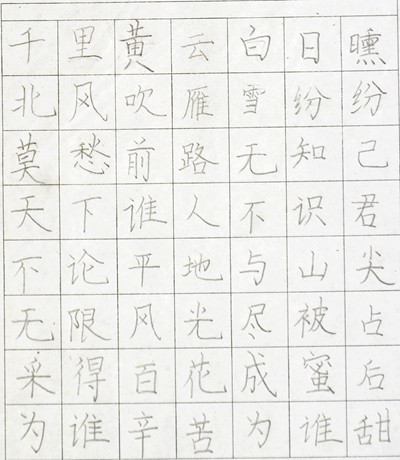 千里黄云白日曛
北风吹雁雪纷纷
莫愁前路无知己
天下谁人不识君
不论平地与山尖
无限风光尽被占
采得百花成蜜后
为谁辛苦为谁甜